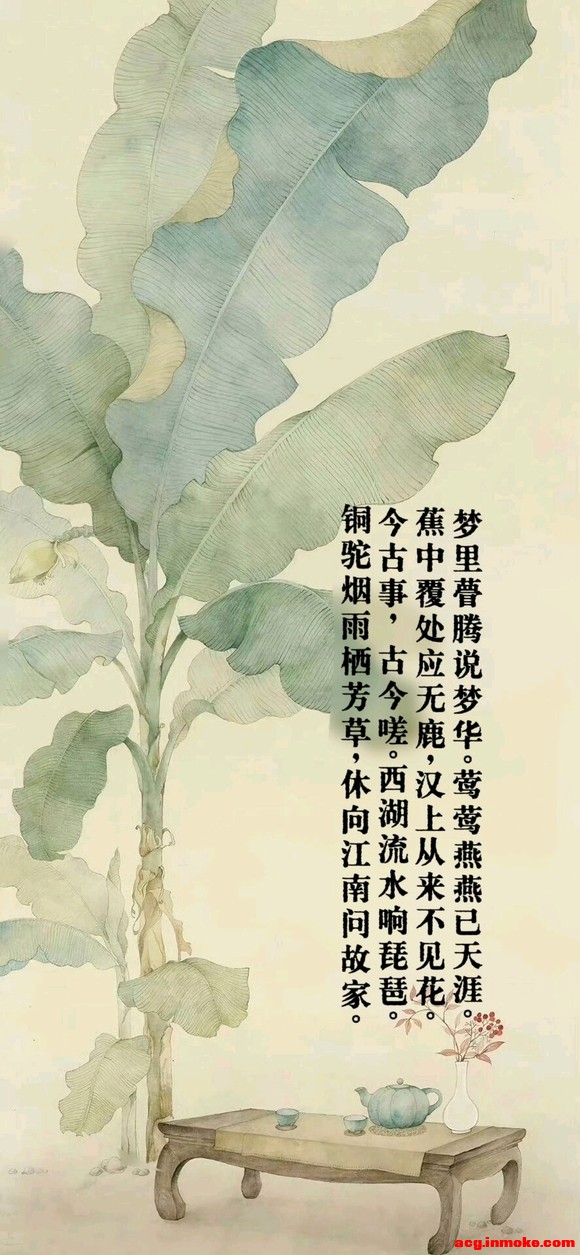 梦里瞢腾说梦华。莺莺燕燕已天涯。
蕉中覆处应无鹿，汉上从来不见花。
今古事，古今嗟。西湖流水响琵琶。
铜驼烟雨栖芳草，休向江南问故家。
acg.inmoke.com